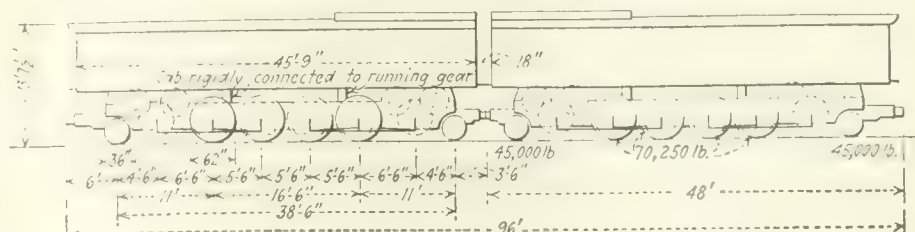 45'-9"
18"
Cab rigidly connected to running gear
13'7½"
45,000 lb
70,250 lb.
45,000 lb.
36"
62"
6'
4'-6"
6'-6"
5'-6"
5'-6"
5'-6"
6'-6"
4'-6"
3'-6"
11'
16'-6"
11'
48'
38'-6"
96'